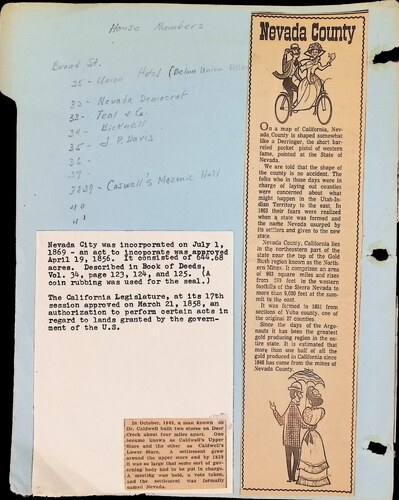 House Numbers
Broad St.
25 - Union Hotel (Below Union
32 - Nevada Democrat
33 - Teal & Co.
34 - Bicknell
35 - J. P. Davis
36 -
37
38&39 - Caswell's Masonic Hall
40
41
Nevada City was incorporated on July 1,
1869 - an act to incoporate was approved
April 19, 1856. It consisted of 644.68
acres. Described in Book of Deeds,
Vol. 34, page 123, 124, and 125. (A
coin rubbing was used for the seal.)
The California Legislature, at its 17th
session approved on March 21, 1858, an
authorization to perform certain acts in
regard to lands granted by the govern-
ment of the U.S.
In October, 1849, a man known as
Dr. Caldwell built two stores on Deer
Creek about four miles apart. One
became known as Caldwell's Upper
Store and the other as Caldwell's
Lower Store. A settlement grew
around the upper store and by 1850
it was so large that some sort of gov-
erning body had to be put in charge.
A meeting was held, a vote taken,
and the settlement was formally
named Nevada.
Nevada County
On a map of California, Nev-
ada County is shaped somewhat
like a Derringer, the short bar-
reled pocket pistol of western
fame, pointed at the State of
Nevada.
We are told that the shape of
the county is no accident. The
folks who in those days were in
charge of laying out counties
were concerned about what
might happen in the Utah-In-
dian Territory to the east. In
their fears were realized
when a state was formed and
the name Nevada usurped by its
settlers and given to the new
state.
Nevada County, California lies
in the northeastern part of the
state near the top of the Gold
Rush region known as the North-
ern Mines. It comprises an area
of square miles and rises
from feet in the western
foothills of the Sierra Nevada
to more than 9,000 feet at the sum-
mit to the east.
It was formed in 1851 from
sections of Yuba county, one of
the original 27 counties.
Since the days of the Argo-
nauts it has been the greatest
gold producing region in the en-
tire state. It is estimated that
more than one half of all the
gold produced in California since
1848 has come from the mines of
Nevada County.